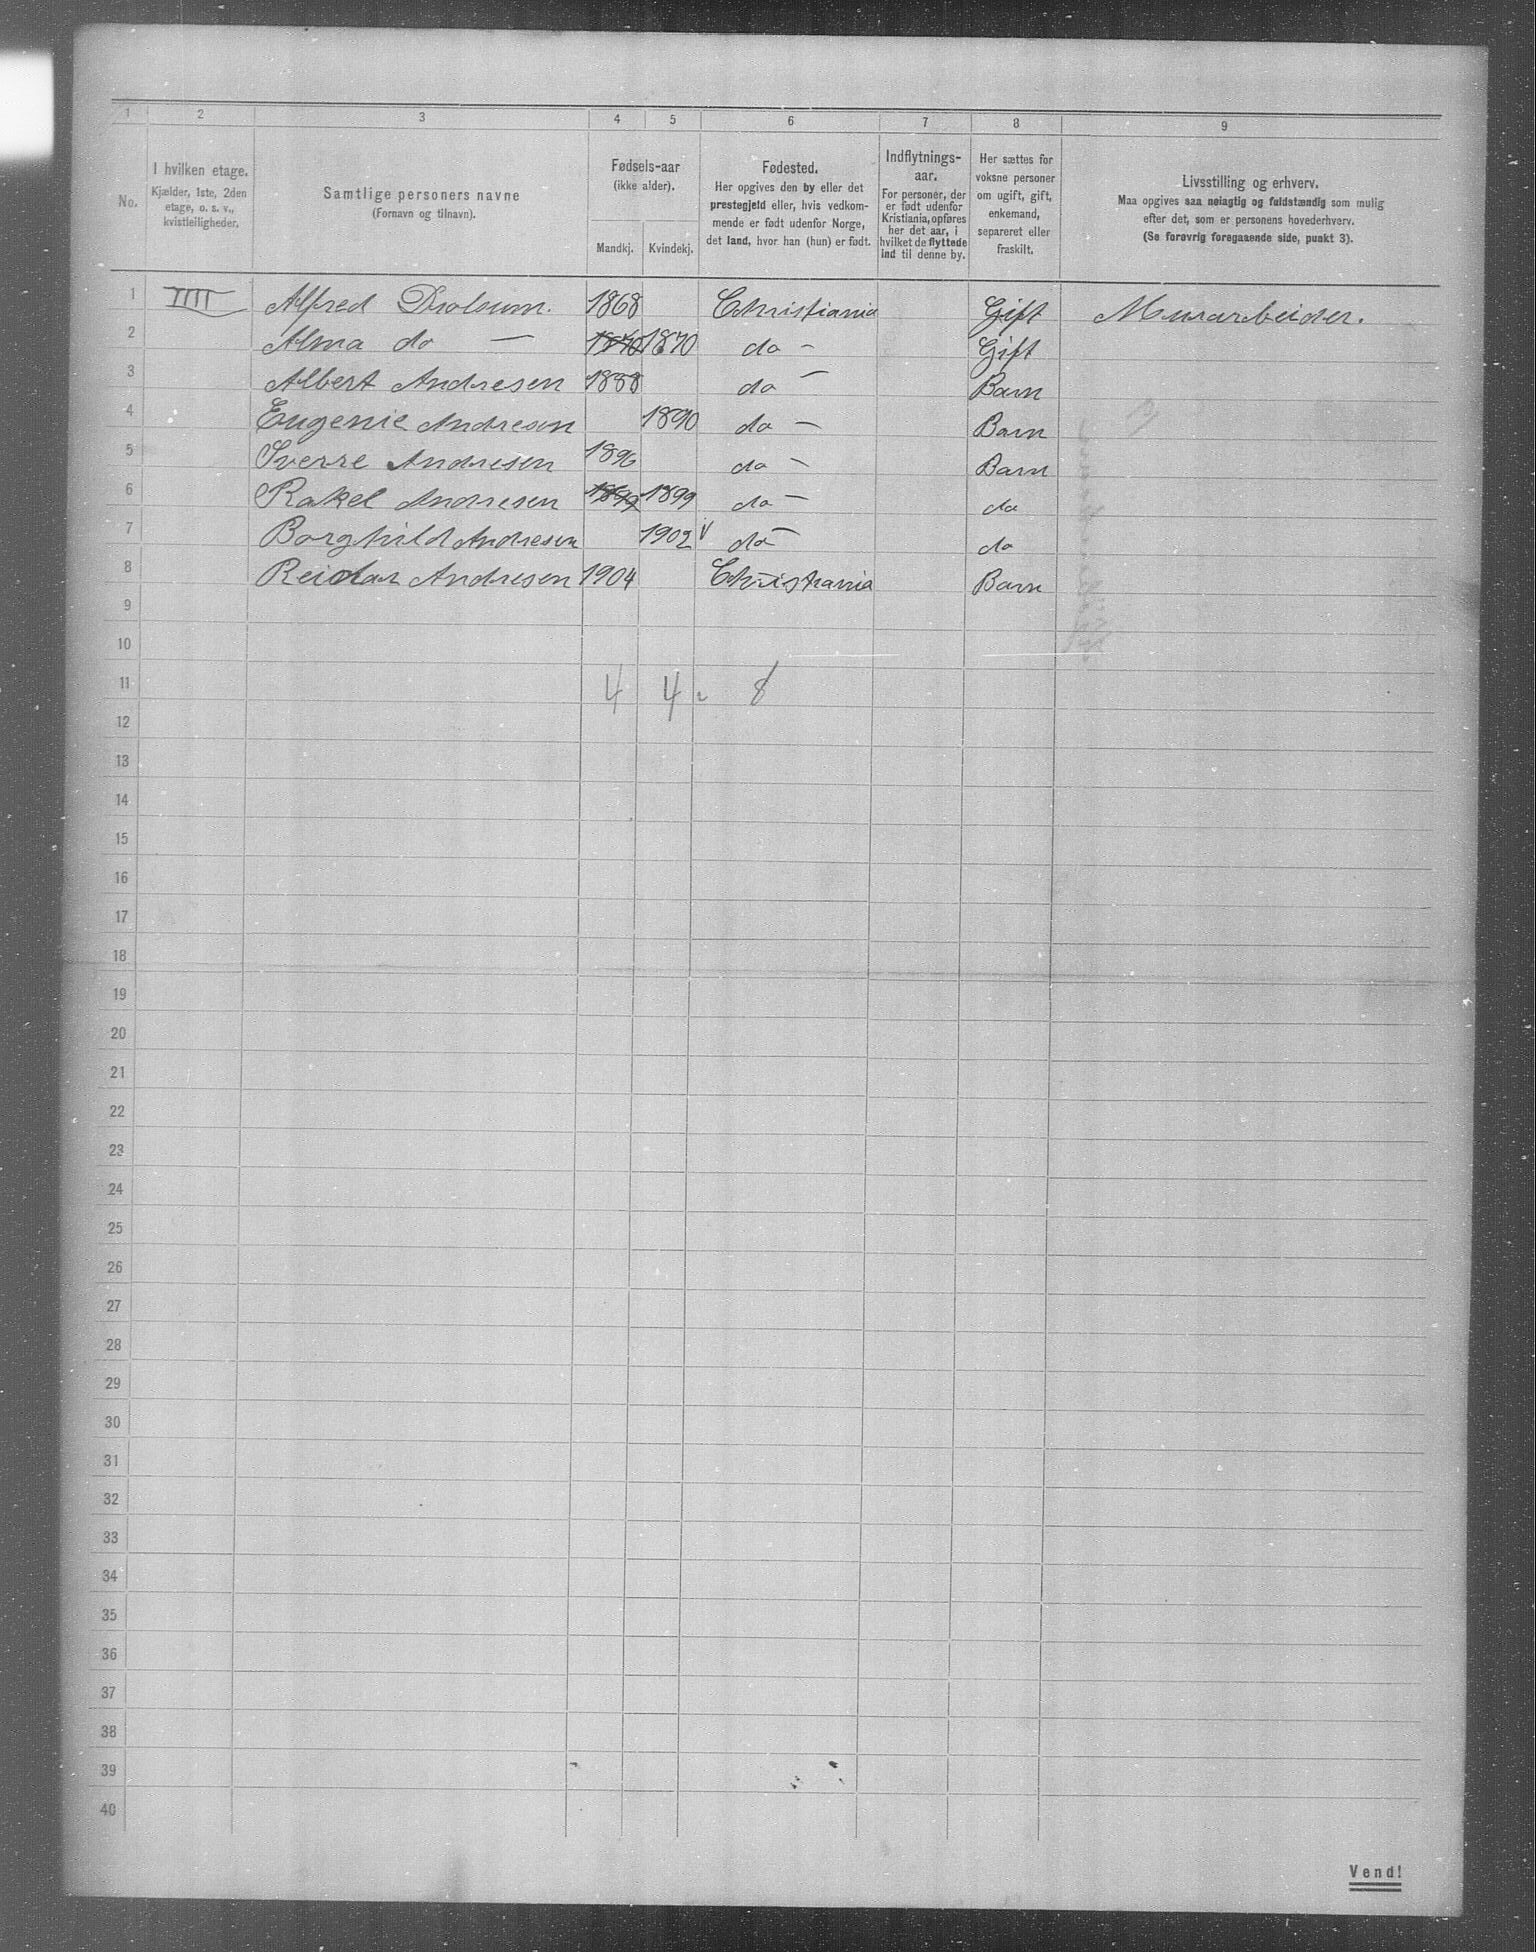 1 2 3 4 5 6 7 8 9
No.
I hvilken etage.
Kjælder, 1ste, 2den
etage, o. s. v.,
kvistleiligheder.
Samtlige personers navne
(Fornavn og tilnavn).
Fødsels-aar
(ikke alder).
Mandkj. Kvindekj.
Fødested.
Her opgives den by eller det
prestegjeld eller, hvis vedkom-
mende er født udenfor Norge,
det land, hvor han (hun) er født.
Indflytnings-
aar.
For personer, der
er født udenfor
Kristiania, opføres
her det aar, i
hvilket de flyttede
ind til denne by.
Her sættes for
voksne personer
om ugift, gift,
enkemand,
separeret eller
fraskilt.
Livsstilling og erhverv.
Maa opgives saa nøiagtig og fuldstændig som mulig
efter det, som er personens hovederhverv.
(Se forøvrig foregaaende side, punkt 3).
1 IIII Alfred Drolsum. 1868 Christiania Gift Murarbeider.
2 Alma do — 1870 1870 do — Gift
3 Albert Andresen 1888 do — Barn
4 Eugenie Andresen 1890 do — Barn
5 Sverre Andresen 1896 do — Barn
6 Rakel Andresen 1899 1899 do — do
7 Borghild Andresen 1902 V do — do
8 Reidar Andresen 1904 Christiania Barn
9
10
11 4 4 8
12
13
14
15
16
17
18
19
20
21
22
23
24
25
26
27
28
29
30
31
32
33
34
35
36
37
38
39
40
Vend!